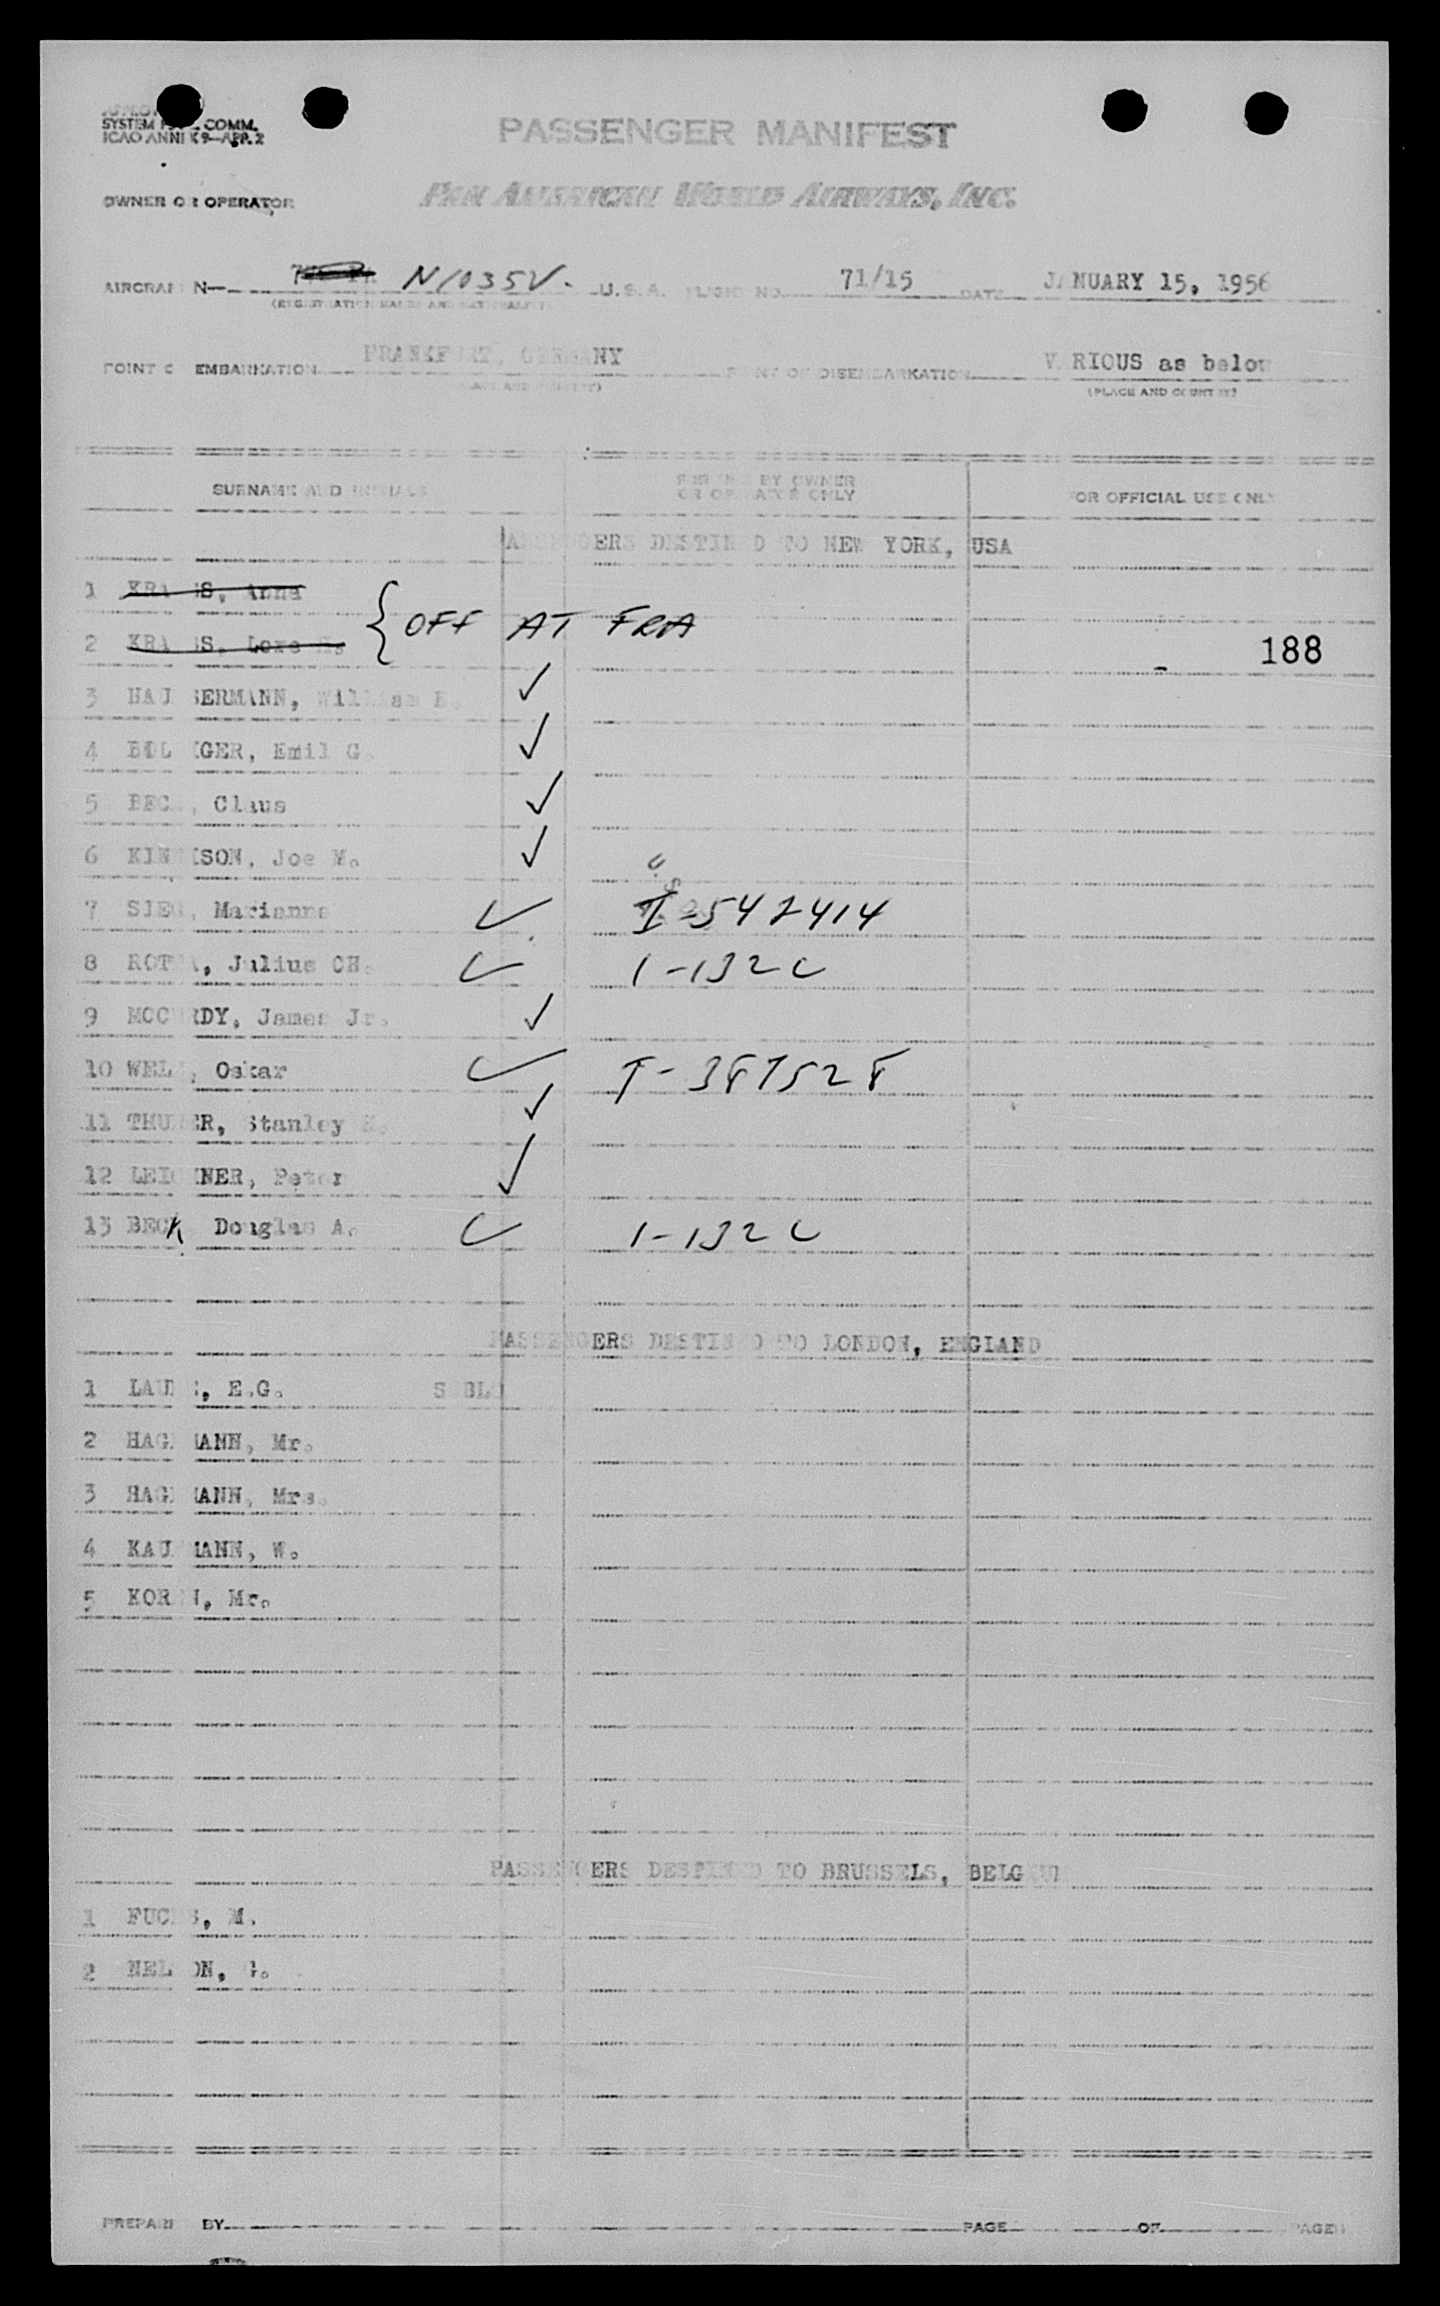 SYSTEM COMM.
ICAO ANNEX 9—APP. 2
PASSENGER MANIFEST
OWNER OR OPERATOR
PAN AMERICAN WORLD AIRWAYS, INC.
AIRCRAFT N— N1035V. U.S.A. FLIGHT NO. 71/15 DATE JANUARY 15, 1956
(REGISTRATION MARKS AND NATIONALITY)
POINT OF EMBARKATION FRANKFURT, GERMANY POINT OF DISEMBARKATION VARIOUS as below
(PLACE AND COUNTRY) (PLACE AND COUNTRY)
SURNAME AND INITIALS FOR USE BY OWNER OR OPERATOR ONLY FOR OFFICIAL USE ONLY
PASSENGERS DESTINED TO NEW YORK, USA
1 KRAUS, Anna
{ OFF AT FRA
2 KRAUS, Lore
188
3 HAUSERMANN, William H. ✓
4 BOLINGER, Emil G. ✓
5 BECK, Claus ✓
6 KINNISON, Joe M. ✓
7 SIEG, Marianne ✓ I-542414
8 ROTHA, Julius CH. ✓ 1-132 C
9 MCCURDY, James Jr. ✓
10 WELL, Oskar ✓ T-387528
11 Stanley ✓
12 LEICHNER, Peter ✓
13 BECK Douglas A. ✓ 1-132 C
PASSENGERS DESTINED TO LONDON, ENGLAND
1 E.G.
2 HAGEMANN, Mr.
3 HAGEMANN, Mrs.
4 KAUFMANN, W.
5 Mr.
PASSENGERS DESTINED TO BRUSSELS, BELGIUM
1 FUCHS, M.
2 NELSON, G.
PREPARED BY PAGE OF PAGES